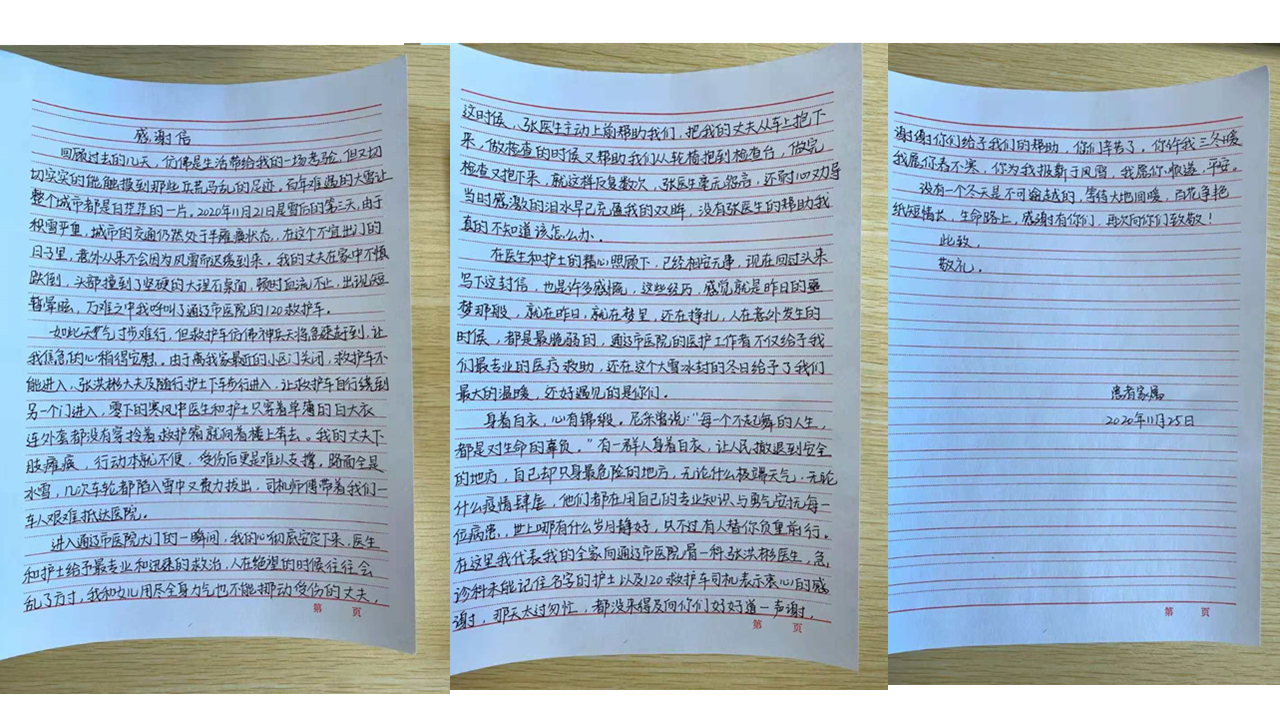 感谢信
回顾过去的几天，仿佛是生活带给我的一场考验，但又切
切实实的能触摸到那些兵荒马乱的足迹。百年难遇的大雪让
整个城市都是白茫茫的一片。2020年11月21日是雪后的第三天，由于
积雪严重，城市的交通仍然处于半瘫痪状态，在这个不宜出门的
日子里，意外从来不会因为风雪而迟缓到来，我的丈夫在家中不慎
跌倒，头部撞到了坚硬的大理石桌面，顿时血流不止，出现短
暂晕眩，万难之中我呼叫了通辽市医院的120救护车。
如此天气寸步难行，但救护车仿佛神兵天将急速赶到，让
我焦急的心稍得安慰。由于离我家最近的小区门关闭，救护车不
能进入，张洪彬大夫及随行护士下车步行进入，让救护车自行绕到
另一个门进入，零下的寒风中医生和护士只穿着单薄的白大衣
连外套都没有穿拎着救护箱就向着楼上奔去。我的丈夫下
肢瘫痪，行动本就不便，受伤后更是难以支撑。路面全是
冰雪，几次车轮都陷入雪中又费力拔出，司机师傅带着我们一
车人艰难抵达医院。
进入通辽市医院大门的一瞬间，我的心彻底安定下来，医生
和护士给予最专业和迅速的救治，人在绝望的时候往往会
乱了方寸，我和女儿用尽全身力气也不能挪动受伤的丈夫，
第 页
这时候，张医生主动上前帮助我们，把我的丈夫从车上抱下
来，做检查的时候又帮助我们从轮椅抱到检查台，做完
检查又抱下来，就这样反复数次，张医生毫无怨言，还耐心劝导
当时感激的泪水早已充盈我的双眸，没有张医生的帮助我
真的不知道该怎么办。
在医生和护士的精心照顾下，已经相安无事，现在回过头来
写下这封信，也是许多感慨，这些经历，感觉就是昨日的噩
梦那般，就在昨日，就在梦里，还在挣扎，人在意外发生的
时候，都是最脆弱的，通辽市医院的医护工作者不仅给予我
们最专业的医疗救助，还在这个大雪冰封的冬日给予了我们
最大的温暖，还好遇见的是你们。
身着白衣，心有锦缎。尼采曾说：“每一个不起舞的人生，
都是对生命的辜负。”有一群人身着白衣，让人民撤退到安全
的地方，自己却只身最危险的地方，无论什么极端天气，无论
什么疫情肆虐，他们都在用自己的专业知识与勇气安抚每一
位病患，世上哪有什么岁月静好，只不过有人替你负重前行。
在这里我代表我的全家向通辽市医院胃一科张洪彬医生，急
诊科未能记住名字的护士以及120救护车司机表示衷心的感
谢，那天太过匆忙，都没来得及向你们好好道一声谢，
第 页
谢谢你们给予我们的帮助，你们辛苦了，你许我三冬暖
我愿你春不寒，你为我报薪于风雪，我愿你顺遂，平安。
没有一个冬天是不可逾越的，等待大地回暖，百花争艳
纸短情长，生命路上，感谢有你们，再次向你们致敬！
此致，
敬礼。
患者家属
2020年11月25日
第 页